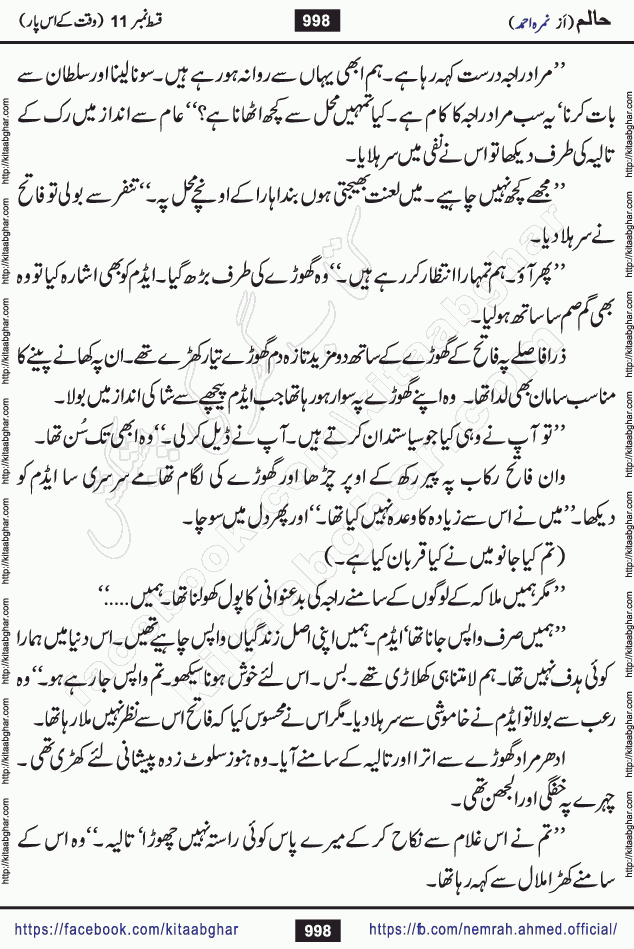 حالم (از نمرہ احمد)
998
قسط نمبر 11 (وقت کے اس پار)
’’مراد راجہ درست کہہ رہا ہے۔ ہم ابھی یہاں سے روانہ ہو رہے ہیں۔ سونا لینا اور سلطان سے
بات کرنا‘ یہ سب مراد راجہ کا کام ہے۔ کیا تمہیں محل سے کچھ اٹھانا ہے؟‘‘ عام سے انداز میں رک کے
تالیہ کی طرف دیکھا تو اس نے نفی میں سر ہلایا۔
’’مجھے کچھ نہیں چاہیے۔ میں لعنت بھیجتی ہوں بنداہارا کے اونچے محل پہ۔‘‘ تنفر سے بولی تو فاتح
نے سر ہلا دیا۔
’’پھر آؤ۔ ہم تمہارا انتظار کر رہے ہیں۔‘‘ وہ گھوڑے کی طرف بڑھ گیا۔ ایڈم کو بھی اشارہ کیا تو وہ
بھی گم صم سا ساتھ ہولیا۔
ذرا فاصلے پہ فاتح کے گھوڑے کے ساتھ دو مزید تازہ دم گھوڑے تیار کھڑے تھے۔ ان پہ کھانے پینے کا
مناسب سامان بھی لدا تھا۔ وہ اپنے گھوڑے پہ سوار ہو رہا تھا جب ایڈم پیچھے سے شاکی انداز میں بولا۔
’’تو آپ نے وہی کیا جو سیاستدان کرتے ہیں۔ آپ نے ڈیل کر لی۔‘‘ وہ ابھی تک سُن تھا۔
وان فاتح رکاب پہ پیر رکھ کے اوپر چڑھا اور گھوڑے کی لگام تھامے سرسری سا ایڈم کو
دیکھا۔ ’’میں نے اس سے زیادہ کا وعدہ نہیں کیا تھا۔‘‘ اور پھر دل میں سوچا۔
(تم کیا جانو میں نے کیا قربان کیا ہے۔)
’’مگر ہمیں ملاکہ کے لوگوں کے سامنے راجہ کی بدعنوانی کا پول کھولنا تھا۔ ہمیں.....‘‘
’’ہمیں صرف واپس جانا تھا‘ ایڈم۔ ہمیں اپنی اصل زندگیاں واپس چاہیے تھیں۔ اس دنیا میں ہمارا
کوئی ہدف نہیں تھا۔ ہم لامتناہی کھلاڑی تھے۔ بس۔ اس لئے خوش ہونا سیکھو۔ تم واپس جا رہے ہو۔‘‘ وہ
رعب سے بولا تو ایڈم نے خاموشی سے سر ہلا دیا۔ مگر اس نے محسوس کیا کہ فاتح اس سے نظر نہیں ملا رہا تھا۔
ادھر مراد گھوڑے سے اترا اور تالیہ کے سامنے آیا۔ وہ ہنوز سلوٹ زدہ پیشانی لئے کھڑی تھی۔
چہرے پہ خفگی اور الجھن تھی۔
’’تم نے اس غلام سے نکاح کر کے میرے پاس کوئی راستہ نہیں چھوڑا‘ تالیہ۔‘‘ وہ اس کے
سامنے کھڑا ملال سے کہہ رہا تھا۔
https://facebook.com/kitaabghar
998
https://fb.com/nemrah.ahmed.official/
http://kitaabghar.com